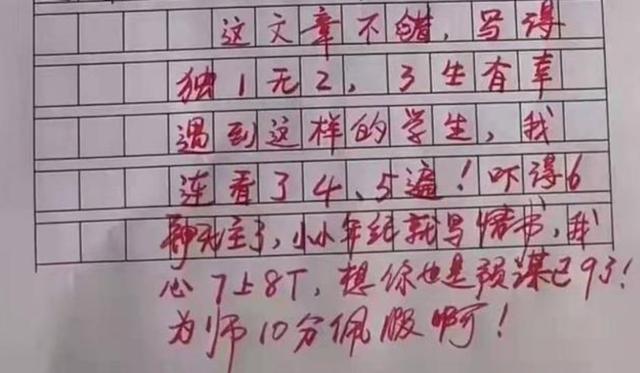 这文章不错，写得
独1无2，3生有幸
遇到这样的学生，我
连看了4、5遍！吓得6
神无主了，小小年纪就写情书，我
心7上8下，想你也是预谋已9了！
为师10分佩服啊！